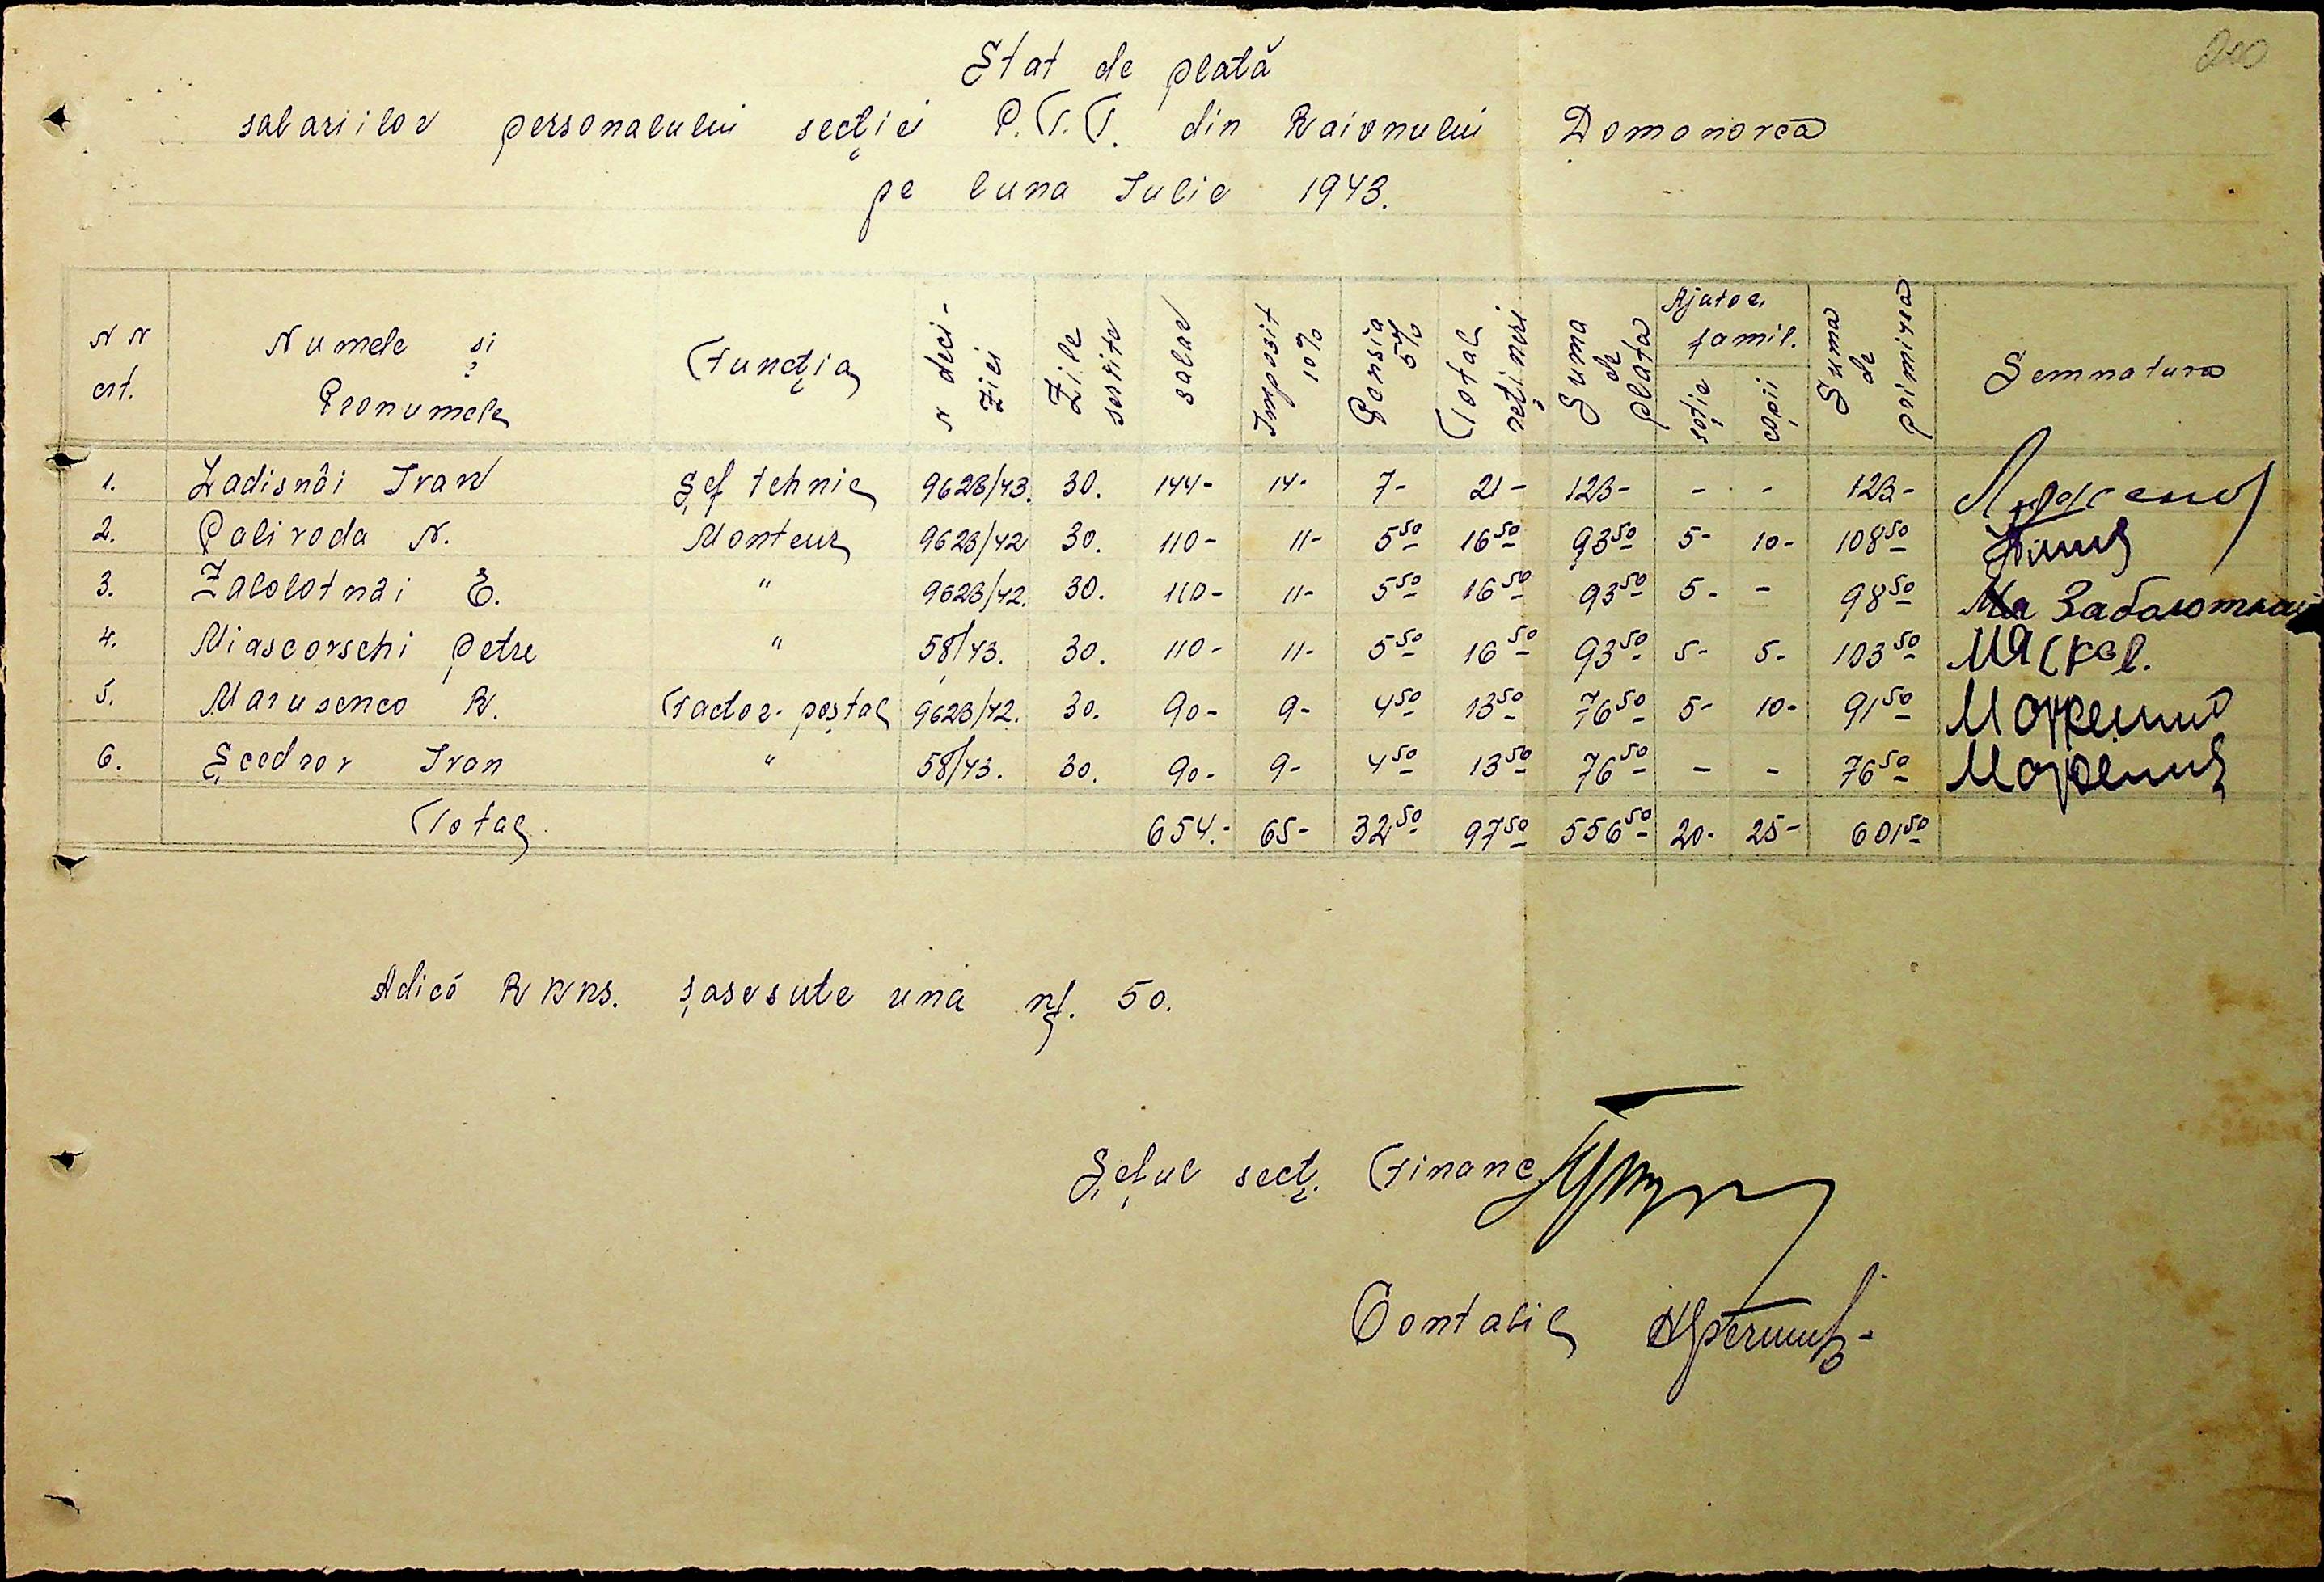 200
Stat de plată
salariilor personalului secției P.T.T. din Raionului Domonovca
pe luna Iulie 1943.
N N crt. | Numele și Pronumele | Funcția | N deciziei | Zile servite | Salar | Imposit 10% | Pensia 5% | Total rețineri | Suma de plata | Ajutor famil. soție | copii | Suma de primirea | Semnatura
1. Ladisnâi Ivan Șef tehnic 9623/43. 30. 144- 14- 7- 21- 123- - - 123-
2. Paliroda N. Monteur 9623/42 30. 110- 11- 5 50 16 50 93 50 5- 10- 108 50
3. Zabolotnâi E. " 9623/42. 30. 110- 11- 5 50 16 50 93 50 5- - 98 50 Заболотная
4. Miascovschi Petre " 58/43. 30. 110- 11- 5 50 16 50 93 50 5- 5- 103 50 Мясков.
5. Marusenco R. Factor poștal 9623/42. 30. 90- 9- 4 50 13 50 76 50 5- 10- 91 50
6. Școdrov Ivan " 58/43. 30. 90- 9- 4 50 13 50 76 50 - - 76 50
Total 654.- 65- 32 50 97 50 556 50 20- 25- 601 50
Adică RKKS. șasesute una pf. 50.
Șeful secț. Financ.
Contabil